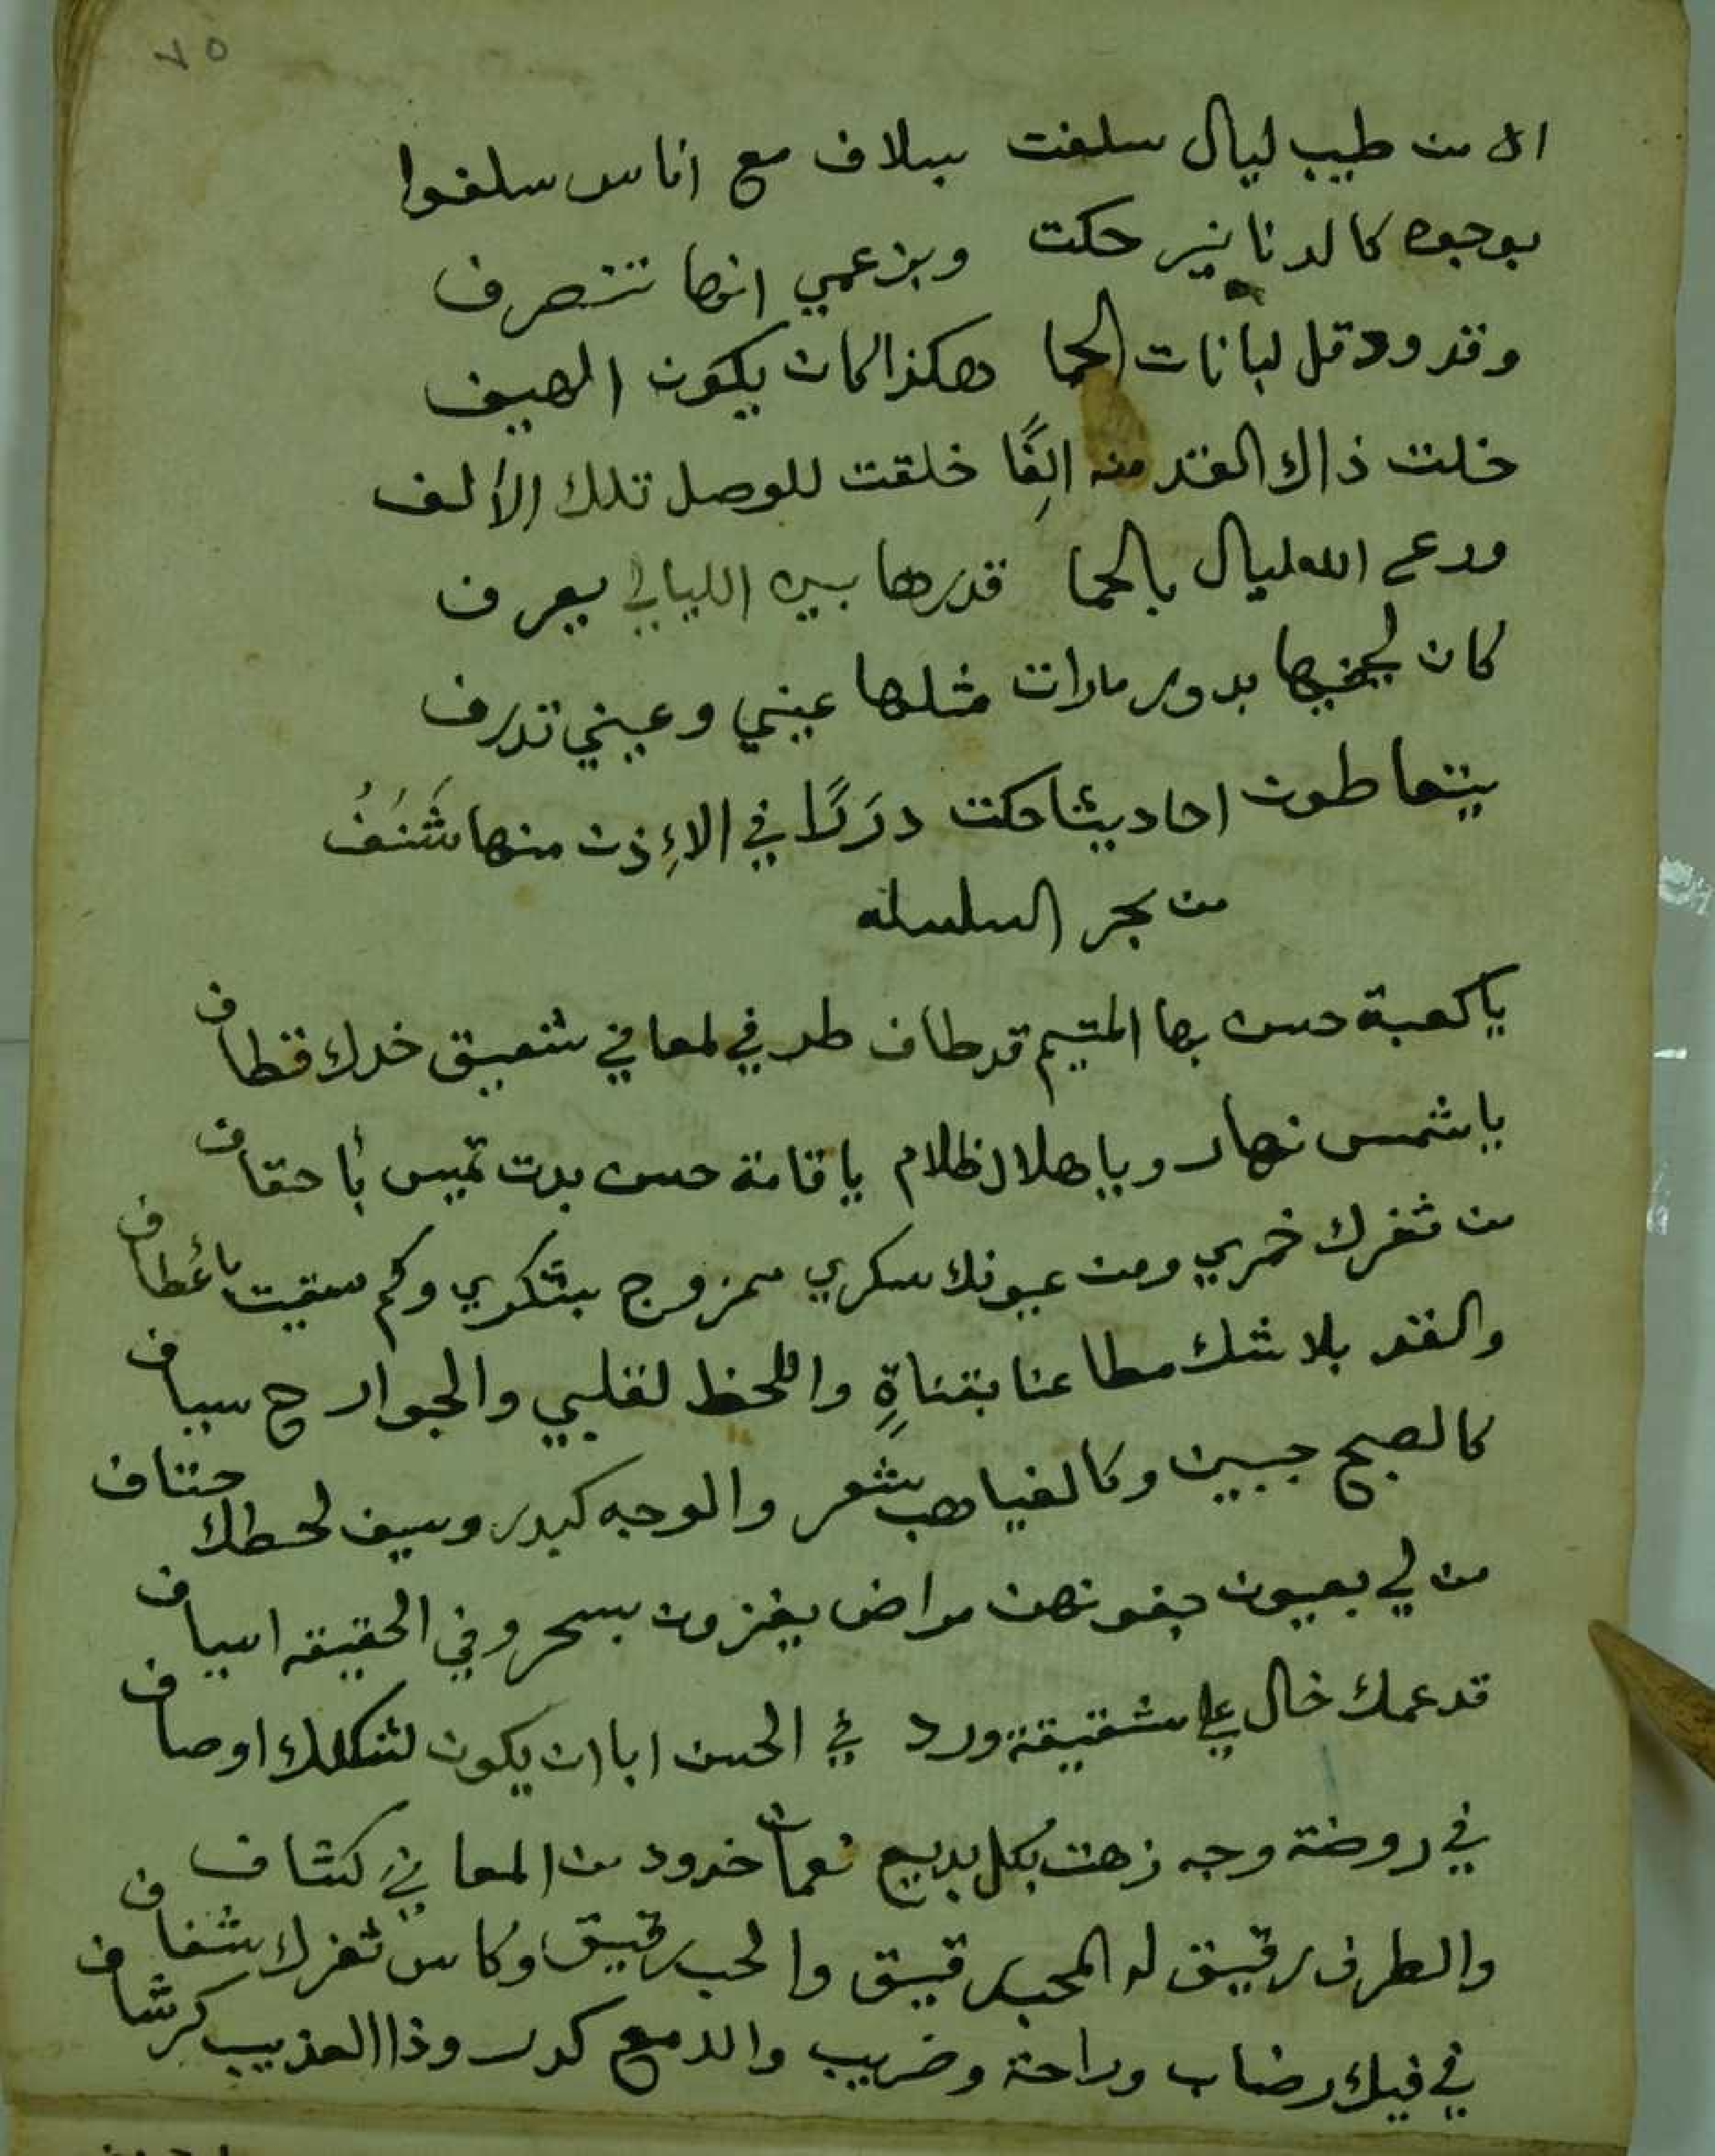 ٧٥
اه من طيب ليال سلفت بسلاف مع اناس سلفوا
بوجوه كالدنانير حكت وبزعمي انها تنصرف
وقدود قل لبانات الحما هكذا كان يكون الهيف
خلت ذاك القد منه الِفًا خلقت للوصل تلك الألف
ورعى الله ليال بالحما قدرها بين الليالي يعرف
كان يجنيها بدور ما رات مثلها عيني وعيني تذرف
يتعاطون احاديثا حكت دررًا في الاذن منها شَنَفُ
من بحر السلسله
يا كعبة حسن بها المتيم قد طاف طرفي لمعاني شقيق خدك قطاف
يا شمس نهار ويا هلال ظلام يا قامة حسن بدت تميس بأحقاف
من ثغرك خمري ومن عيونك سكري ممزوج بشكري وكم سقيت باعطاف
والقد بلا شك مطاعنا بقناةٍ واللحظ لقلبي والجوارح سياف
كالصبح جبين وكالغياهب شعر والوجه كبدر وسيف لحظك حتاف
من لي بعيون جفونهن مراض يغزون بسحر وفي الحقيقه اسياف
قد عمك خال على شقيقة ورد في الحسن ابا ان يكون لشكلك اوصاف
في روضة وجه زهت بكل بديع نعمان خدود من المعاني كشاف
والطرف رقيق له المحب رقيق والحب رقيق وكاس ثغرك شفاف
في فيك رضاب وراحة وضريب والدمع كدر وذا العذيب كرشاف